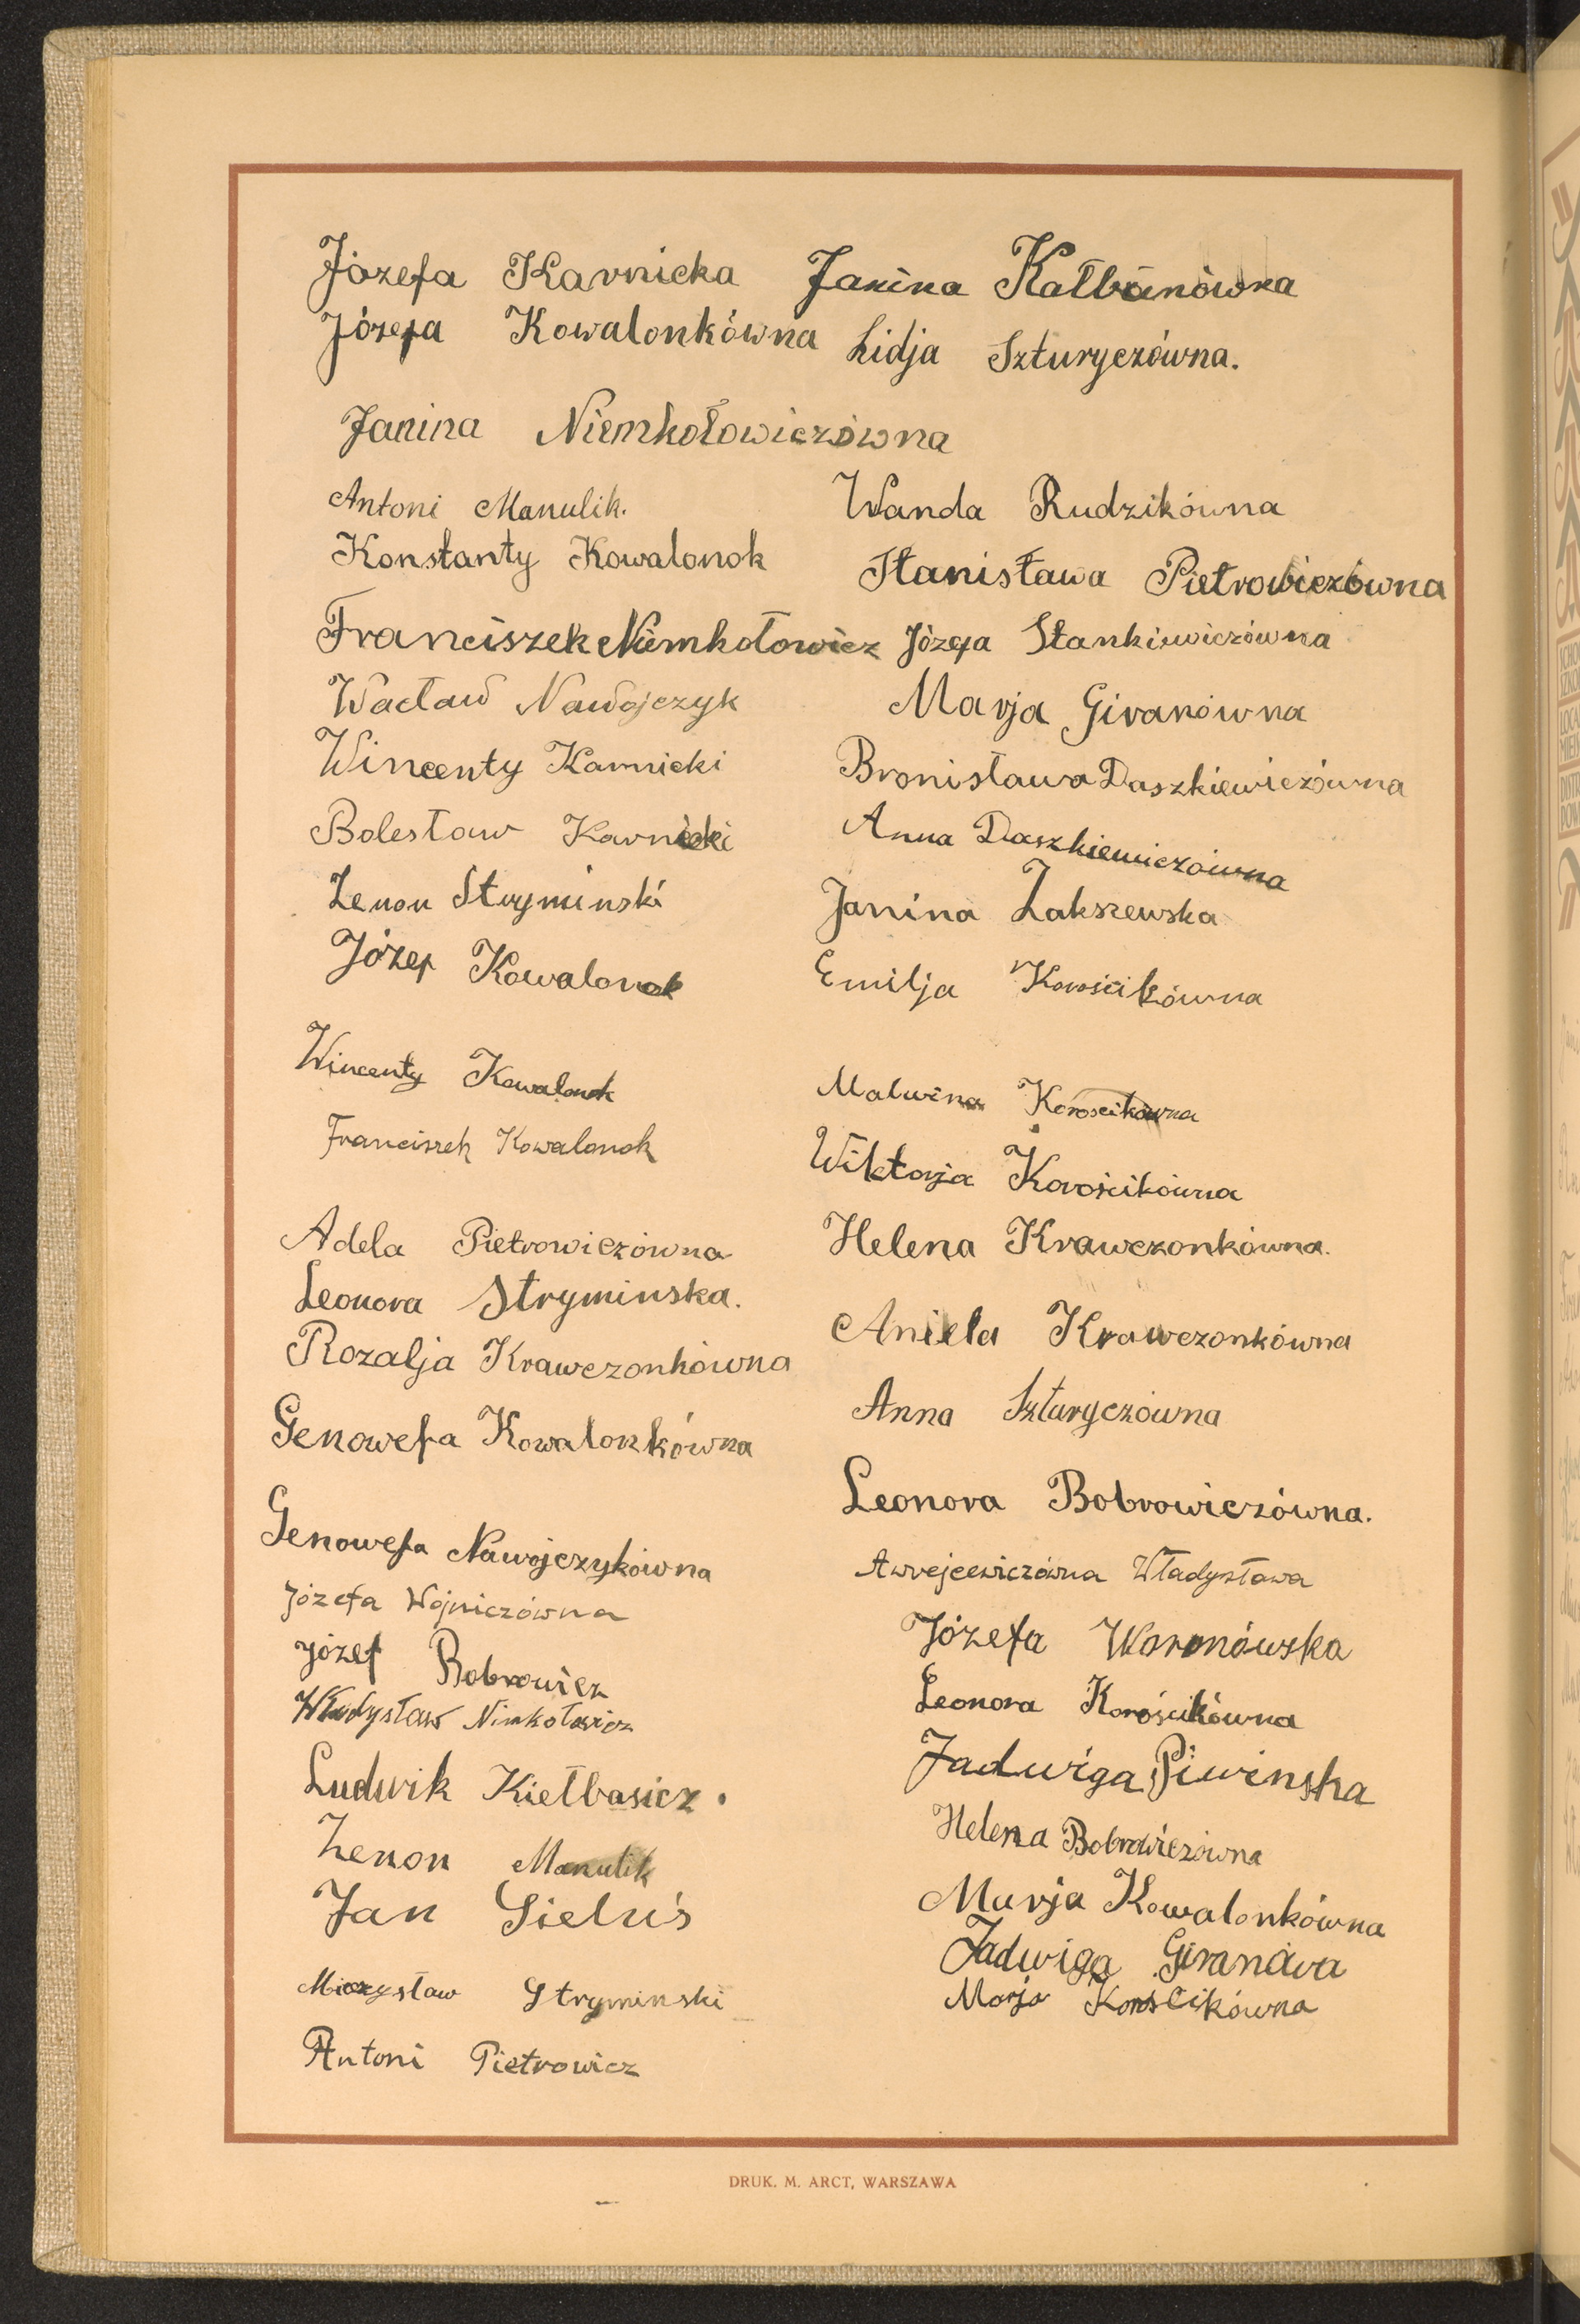 Józefa Karnicka
Józefa Kowalonkówna
Janina Niemkołowiczówna
Antoni Manulik.
Konstanty Kowalonok
Franciszek Niemkołowicz
Wacław Nawojczyk
Wincenty Karnicki
Bolesław Karnicki
Zenon Stryminski
Józef Kowalonok
Wincenty Kowalonok
Franciszek Kowalonok
Adela Pietrowiczówna
Leonora Stryminska.
Rozalja Krawczonkówna
Genowefa Kowalonkówna
Genowefa Nawojczykówna
Józefa Wojniczówna
Józef Bobrowicz
Władysław Nimkołowicz
Ludwik Kiełbasicz.
Zenon Manulik
Jan Gieluś
Mieczysław Stryminski
Antoni Pietrowicz
Janina Kałbanówna
Lidja Szturyczówna.
Wanda Rudzikówna
Stanisława Pietrowiczówna
Józefa Stankiewiczówna
Marja Giranówna
Bronisława Daszkiewiczówna
Anna Daszkiewiczówna
Janina Łakszewska
Emilja Korościkówna
Malwina Korościkówna
Wiktorja Korościkówna
Helena Krawczonkówna.
Aniela Krawczonkówna
Anna Szturyczówna
Leonora Bobrowiczówna.
Awrejcewiczówna Władysława
Józefa Woronówska
Leonora Korościkówna
Jadwiga Piwinska
Helena Bobrowiczówna
Marja Kowalonkówna
Jadwiga
Marja Korościkówna
DRUK. M. ARCT, WARSZAWA